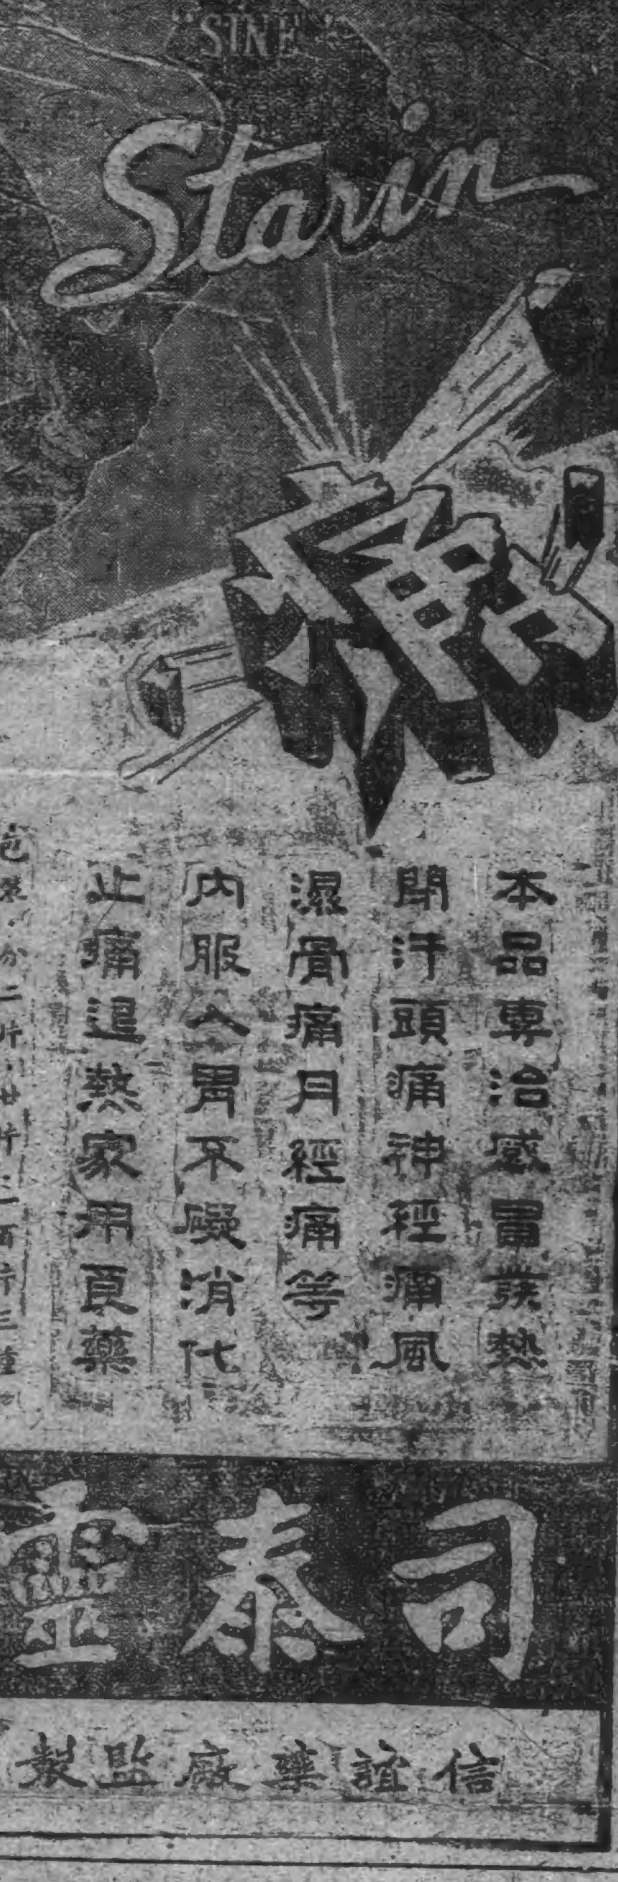 "SINE"
Starin
痛
本品專治感冒發熱
閉汗頭痛神經痛風
濕骨痛月經痛等
內服入胃不礙消化
止痛退熱家用良藥
包裝分二片廿片二百片三種
司泰靈
信誼藥廠監製